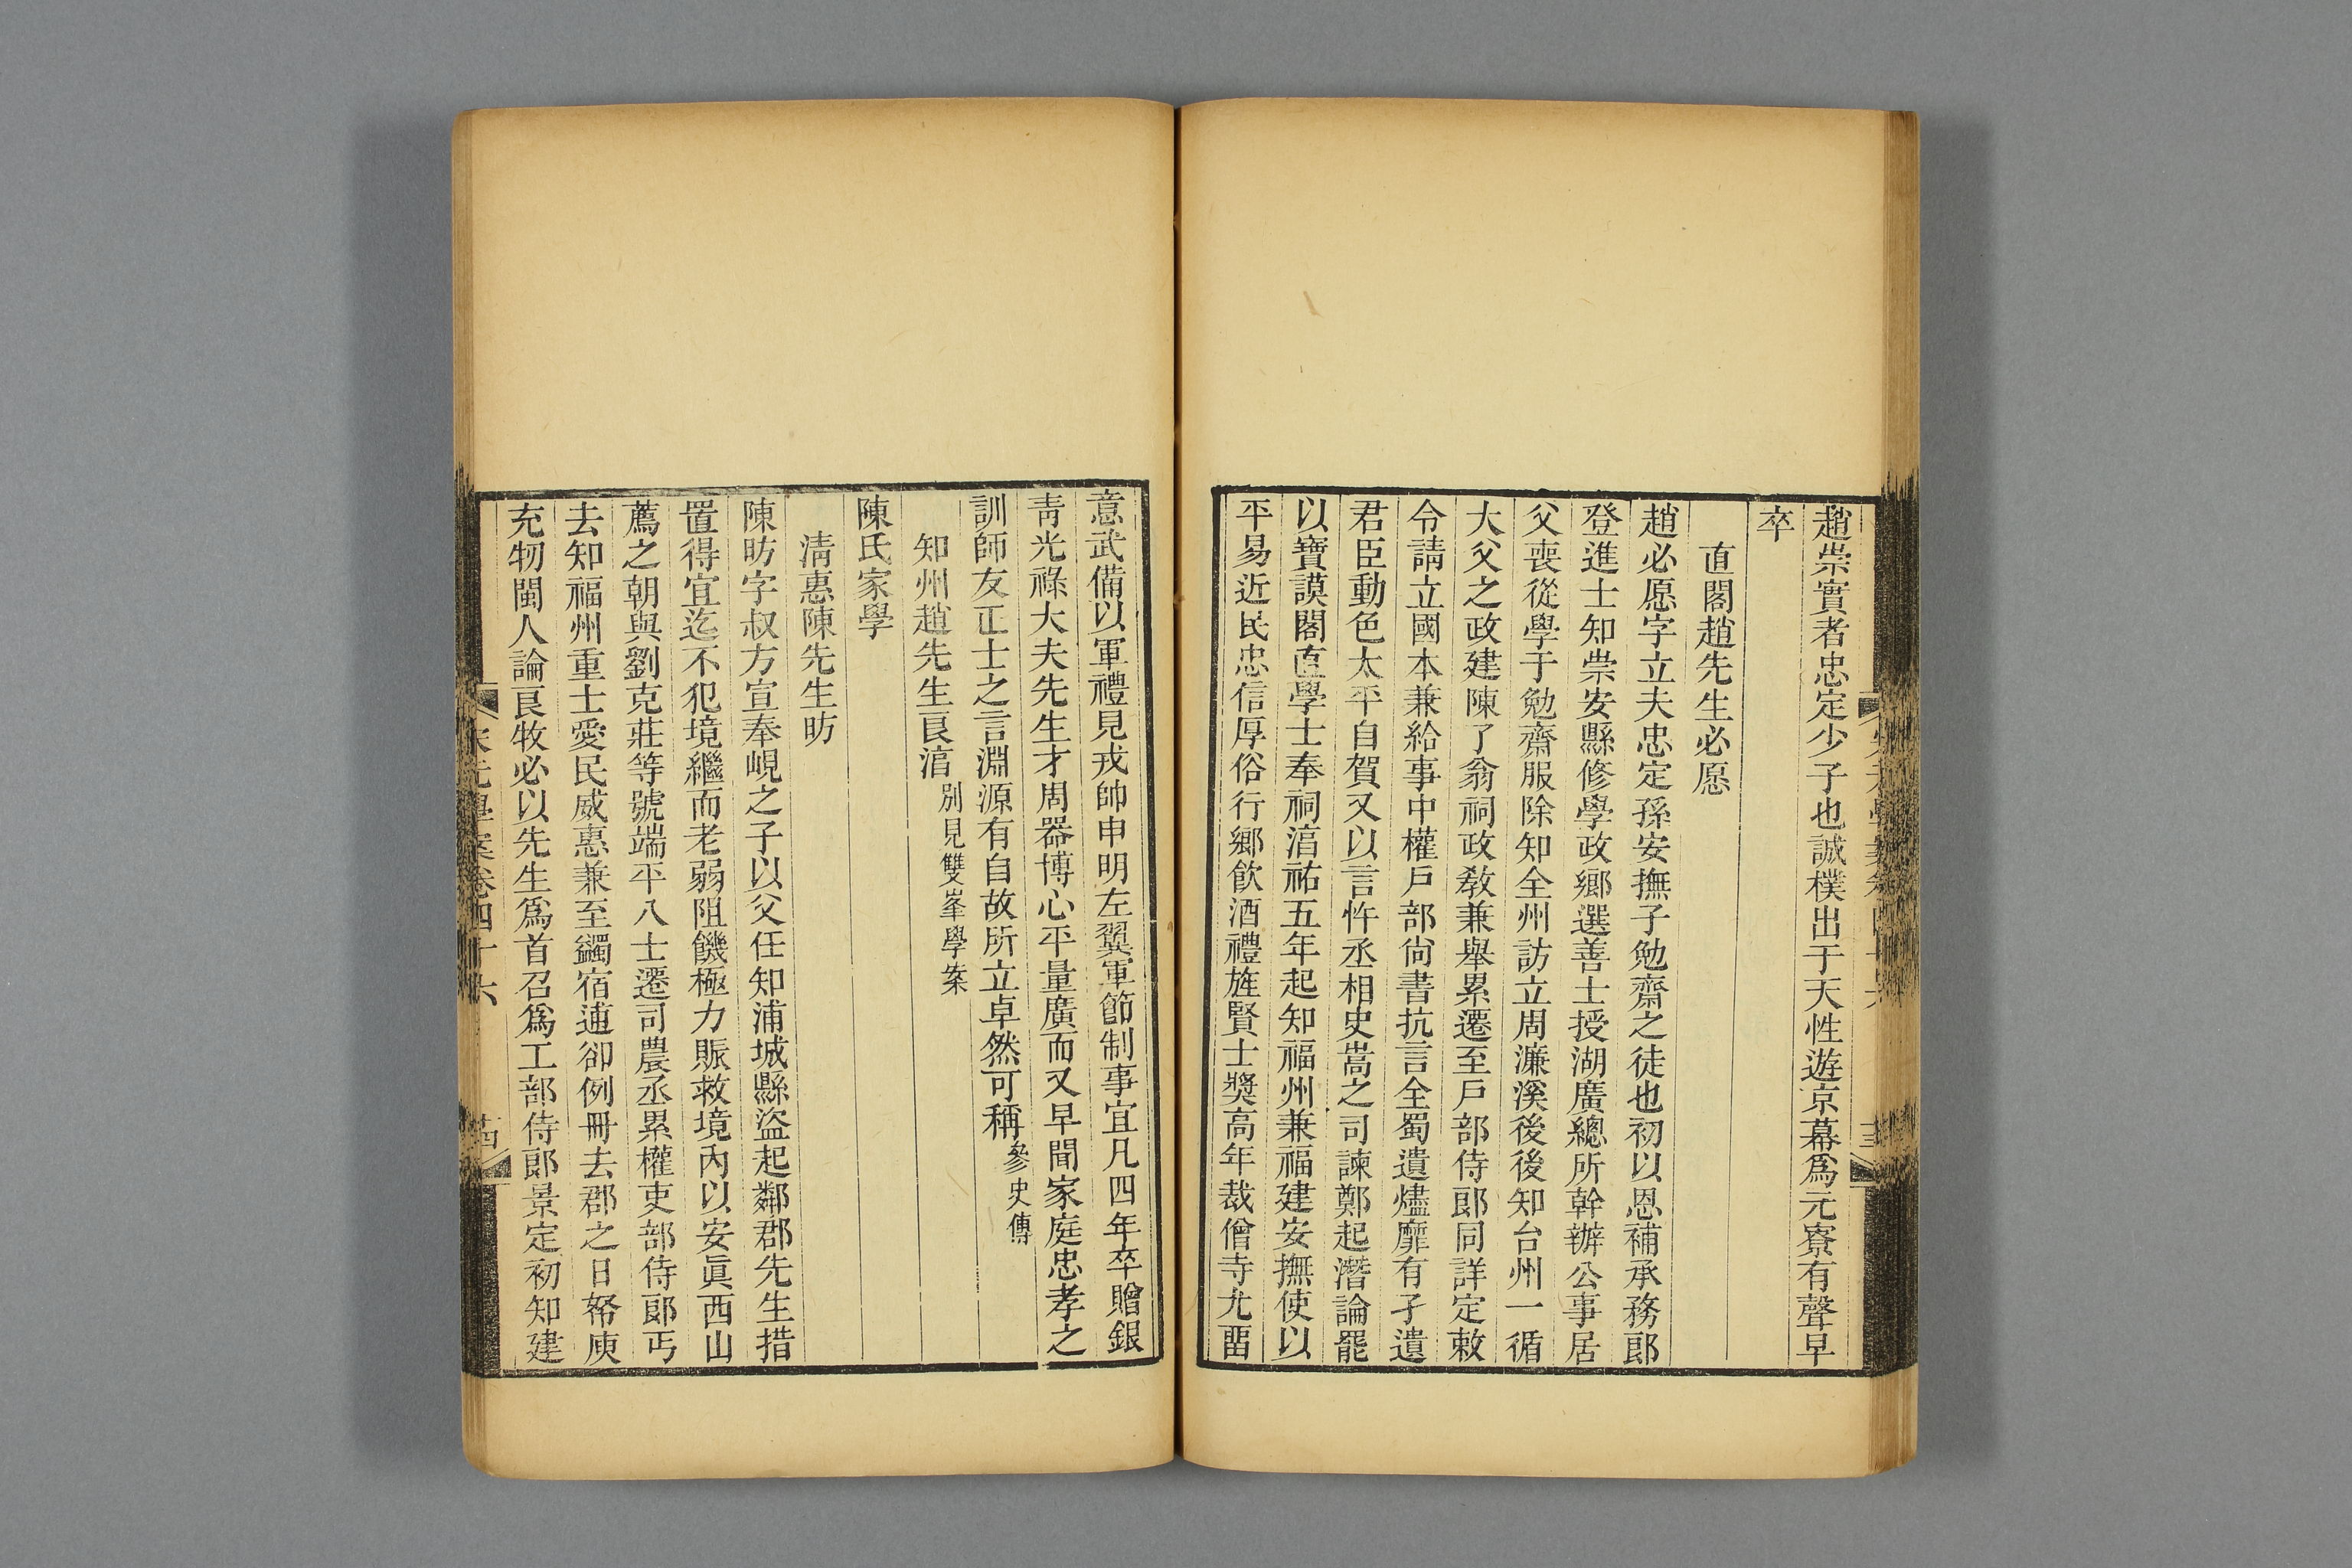 趙崇實者忠定少子也誠樸出于天性遊京幕爲元寮有聲早
卒
直閣趙先生必愿
趙必愿字立夫忠定孫安撫子勉齋之徒也初以恩補承務郎
登進士知崇安縣修學政鄉選善士授湖廣總所幹辦公事居
父喪從學于勉齋服除知全州訪立周濂溪後後知台州一循
大父之政建陳了翁祠政敎兼舉累遷至戸部侍郎同詳定敕
令請立國本兼給事中權戸部尙書抗言全蜀遺燼靡有孑遺
君臣動色太平自賀又以言忤丞相史嵩之司諫鄭起潛論罷
以寶謨閣直學士奉祠湻祐五年起知福州兼福建安撫使以
平易近民忠信厚俗行鄉飮酒禮旌賢士獎高年裁僧寺尤畱
意武備以軍禮見戎帥申明左翼軍節制事宜凡四年卒贈銀
靑光祿大夫先生才周器博心平量廣而又早聞家庭忠孝之
訓師友正士之言淵源有自故所立卓然可稱參史傳
知州趙先生良湻別見雙峯學案
陳氏家學
淸惠陳先生昉
陳昉字叔方宣奉峴之子以父任知浦城縣盜起鄰郡先生措
置得宜迄不犯境繼而老弱阻饑極力賑救境內以安眞西山
薦之朝與劉克莊等號端平八士遷司農丞累權吏部侍郎丐
去知福州重士愛民威惠兼至蠲宿逋卻例冊去郡之日帑庾
充牣閩人論良牧必以先生爲首召爲工部侍郎景定初知建
宋元學案卷四十六